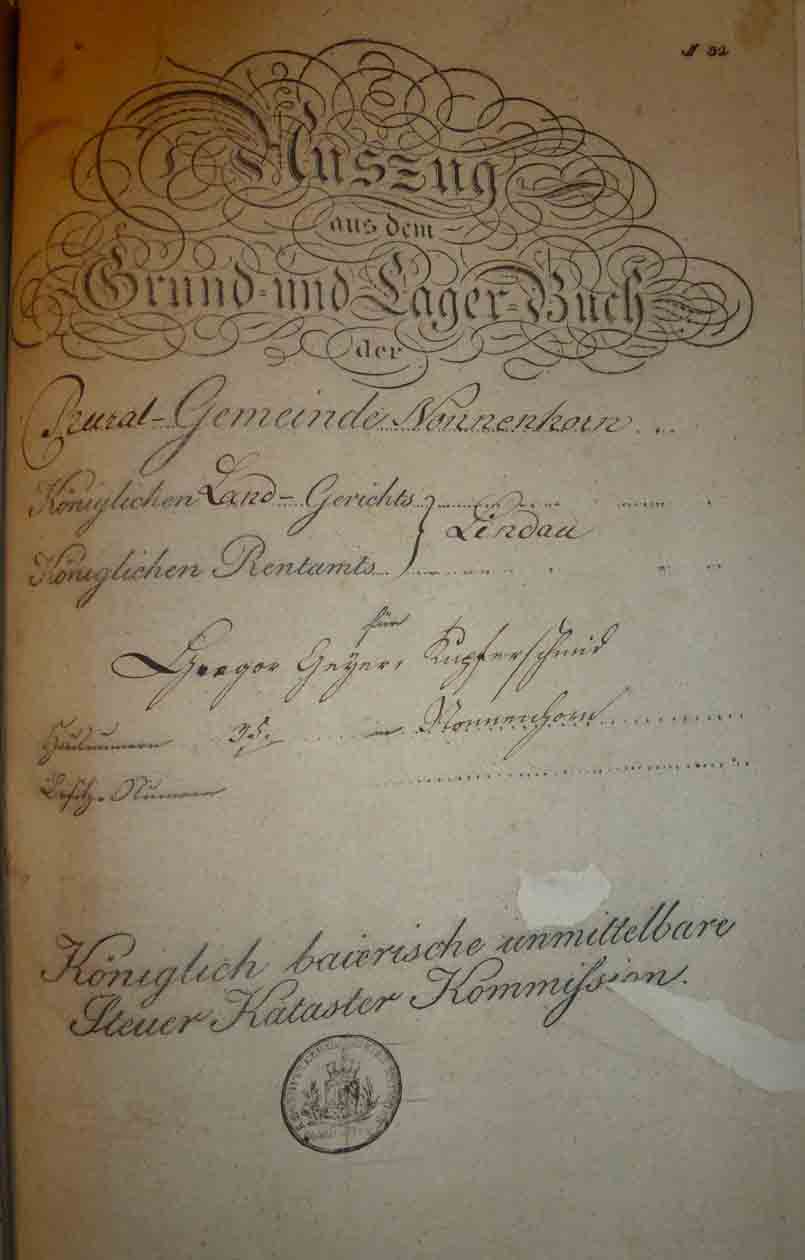 N 32
Auszug
aus dem
Grund- und Lager-Buch
der
Rural-Gemeinde Nonnenhorn
Königlichen Land-Gerichts
Lindau
Königlichen Rentamts
für
Gregor Geyer, Kupferschmid
Hausnummern 35. in Nonnenhorn
Besitz-Nummern
Königlich baierische unmittelbare
Steuer Kataster Kommission.